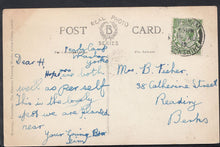 POST CARD
REAL PHOTO
B
SERIES
Camp
Yorks
Dear H
Hope is both
well as per self
This is the lovely
spot we are planted
near.
Your Loving Bro
Mrs. B. Fisher,
38 Catherine Street
Reading
Berks